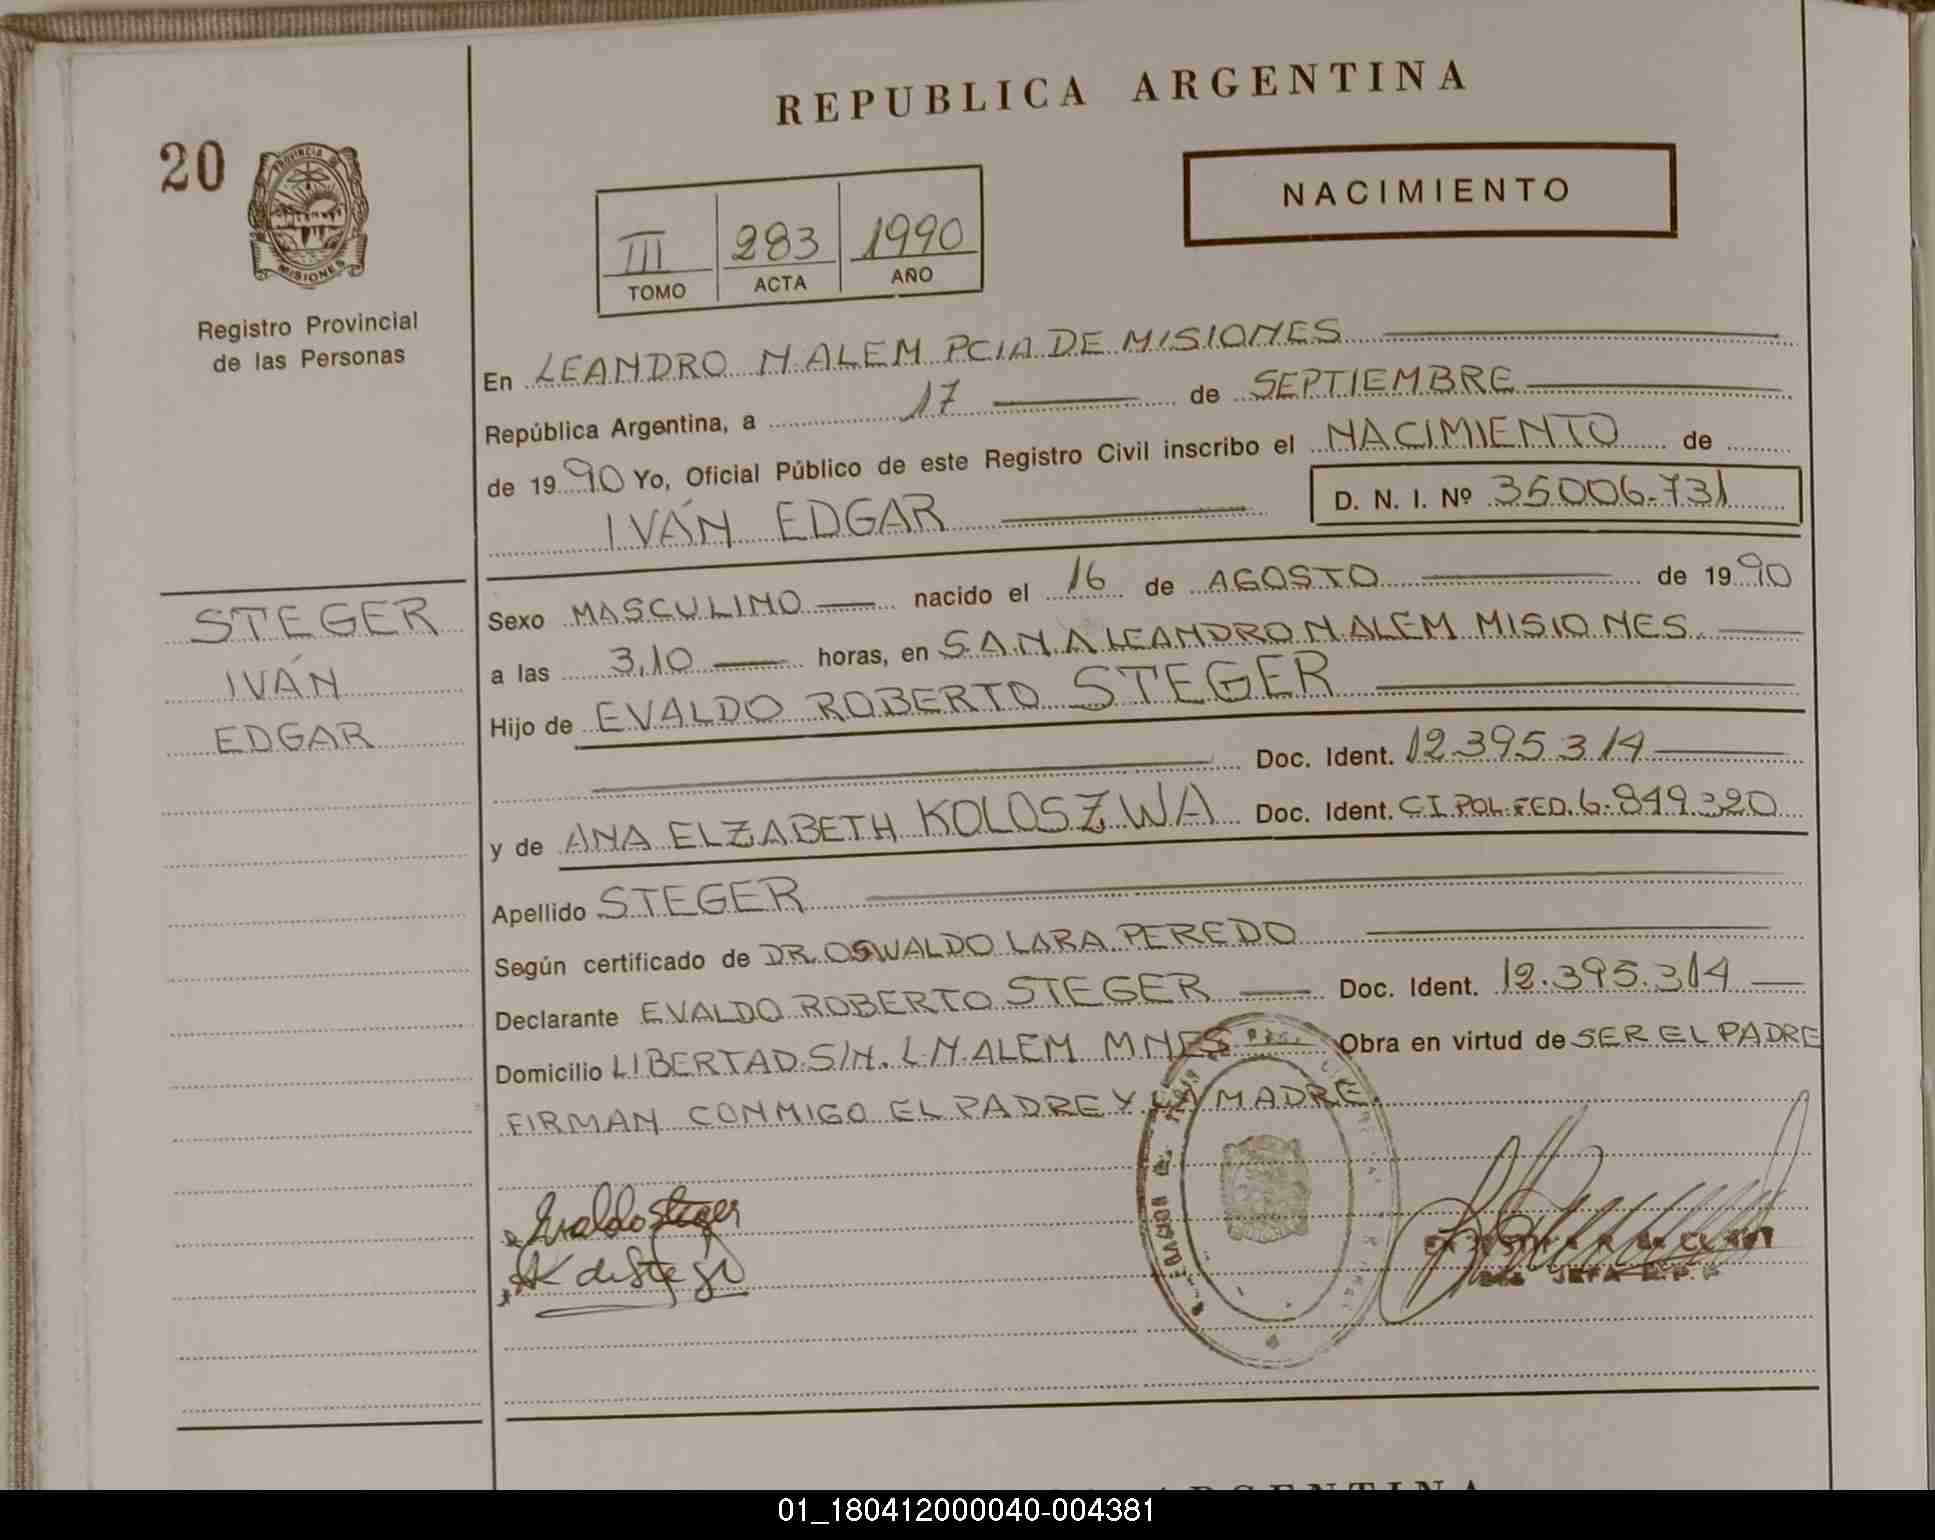 REPUBLICA ARGENTINA
20
PROVINCIA DE
MISIONES
Registro Provincial
de las Personas
NACIMIENTO
III 283 1990
TOMO ACTA AÑO
En LEANDRO N. ALEM PCIA DE MISIONES
República Argentina, a 17 de SEPTIEMBRE
de 19 90 Yo, Oficial Público de este Registro Civil inscribo el NACIMIENTO de
IVÁN EDGAR D. N. I. Nº 35.006.731
STEGER
IVÁN
EDGAR
Sexo MASCULINO nacido el 16 de AGOSTO de 19 90
a las 3,10 horas, en S.A.N.A. LEANDRO N. ALEM MISIONES
Hijo de EVALDO ROBERTO STEGER
Doc. Ident. 12.395.314
y de ANA ELZABETH KOLOSZWA Doc. Ident. C.I. POL. FED. 6.849.320
Apellido STEGER
Según certificado de DR. OSWALDO LARA PEREDO
Declarante EVALDO ROBERTO STEGER Doc. Ident. 12.395.314
Domicilio LIBERTAD S/N. L.N. ALEM MNES Obra en virtud de SER EL PADRE
FIRMAN CONMIGO EL PADRE Y LA MADRE.
Evaldo Steger
AK de Steger
JEFA R.P.P
ARGENTINA
01_180412000040-004381